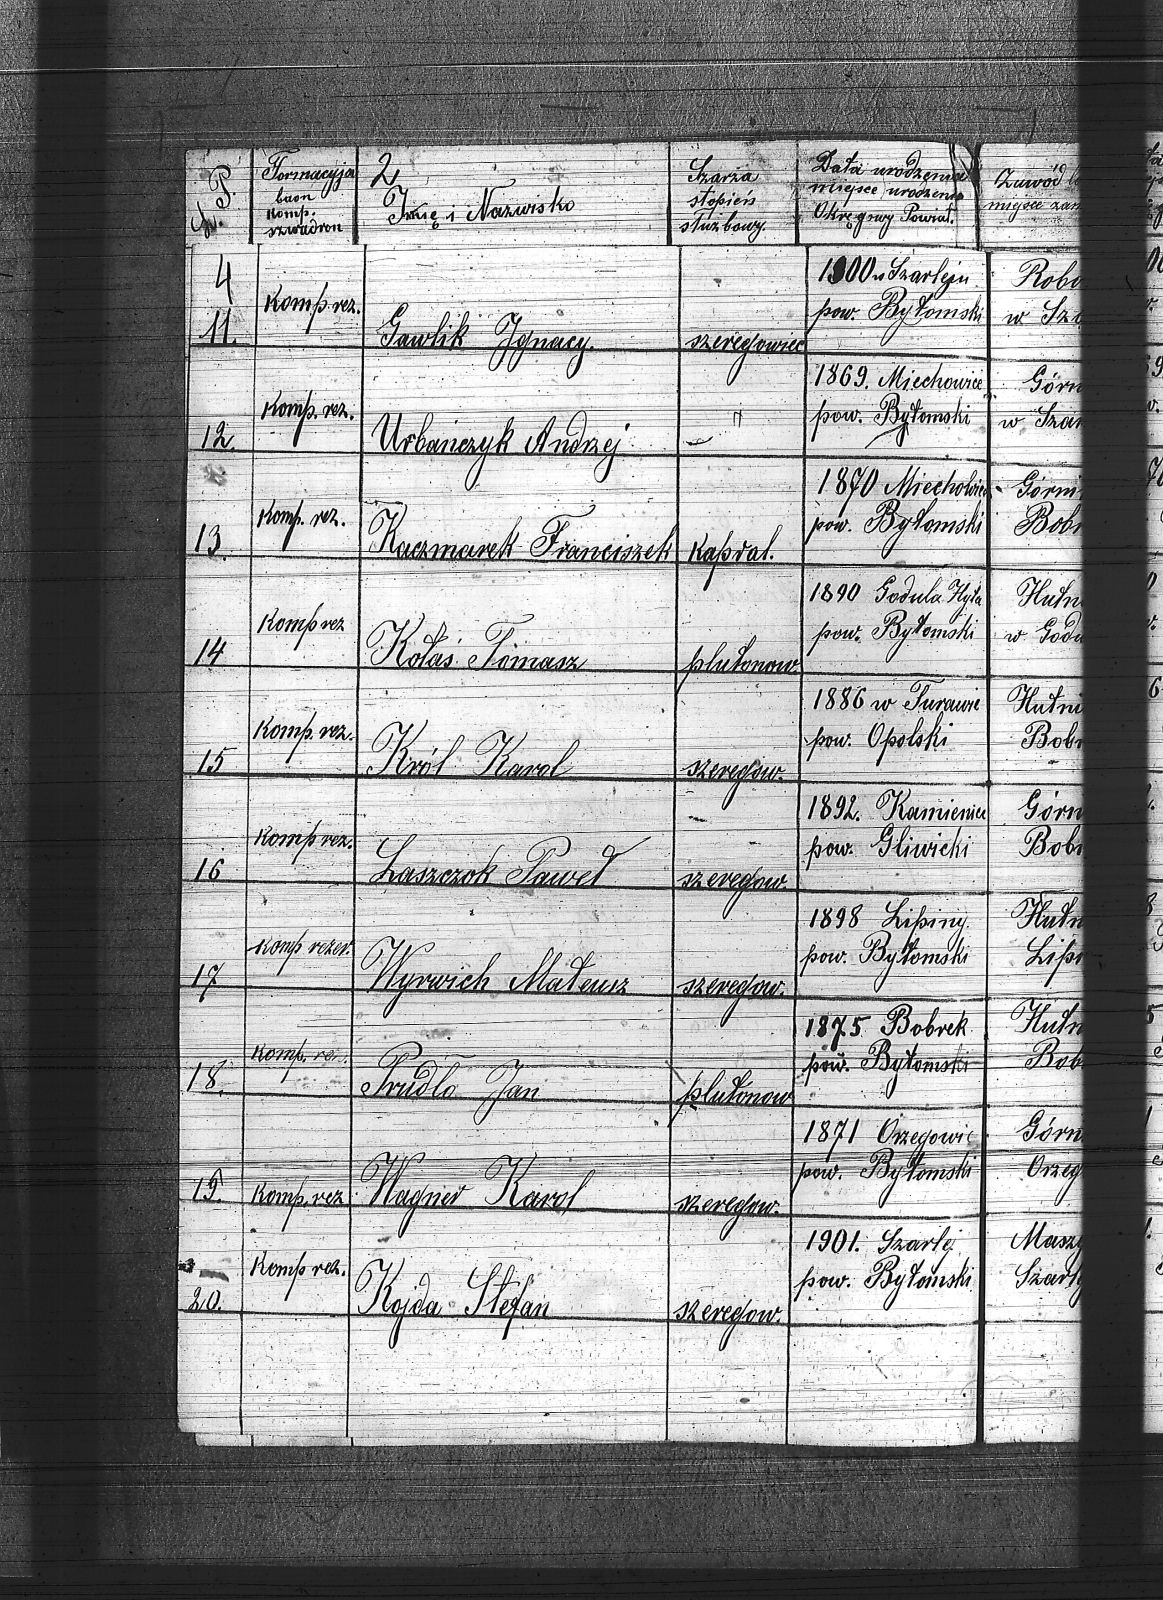 L.P. Formacyja baon komp. szwadron 2 Imię i Nazwisko Szarża stopień służbowy. Data urodzenia miejsce urodzenia Okręgowy Powiat. Zawód
4
11. Komp. rez. Gawlik Ignacy. szeregowiec 1900 w Szarleju pow. Bytomski Robo w Sza
12. Komp. rez. Urbańczyk Andrzej " 1869. Miechowice pow. Bytomski Górn w Szar
13. Komp. rez. Kaczmarek Franciszek kapral. 1870 Miechowice pow. Bytomski Górni Bobr
14 Komp rez Kołaś Tomasz plutonow. 1890 Godula Hyta pow. Bytomski Hutn w Godu
15 Komp. rez. Król Karol szeregow. 1886 w Turawie pow. Opolski Hutni Bobr
16 Komp rez. Laszczok Paweł szeregow. 1892. Kamieniec pow. Gliwicki Górn Bobr
17 Komp rezer. Wyrwich Mateusz szeregow. 1898 Lipiny. pow. Bytomski Hutn Lipi
18. Komp. rez. Prudlo Jan plutonow 1875 Bobrek pow. Bytomski Hutn Bob
19. Komp. rez Wagner Karol szeregow. 1871 Orzegowie pow. Bytomski Górn Orzeg
20. Komp rez. Kojda Stefan szeregow. 1901. Szarlej pow. Bytomski Masz Szarl